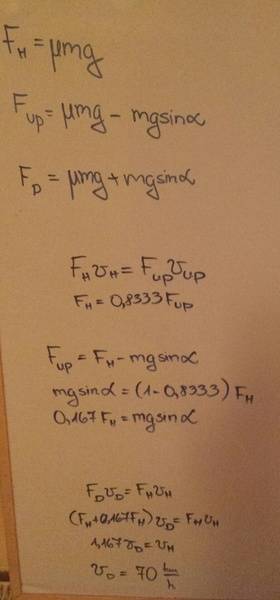 F_H = μmg
F_up = μmg - mgsinα
F_D = μmg + mgsinα
F_H v_H = F_up v_up
F_H = 0,8333 F_up
F_up = F_H - mgsinα
mgsinα = (1 - 0,8333) F_H
0,167 F_H = mgsinα
F_D v_D = F_H v_H
(F_H + 0,167 F_H) v_D = F_H v_H
1,167 v_D = v_H
v_D = 70 km/h